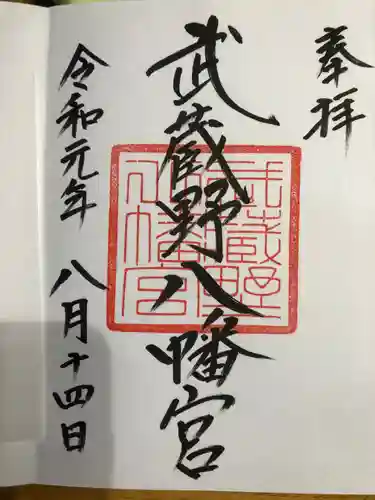 奉拝
武蔵野八幡宮
武蔵野八幡宮
令和元年八月十四日